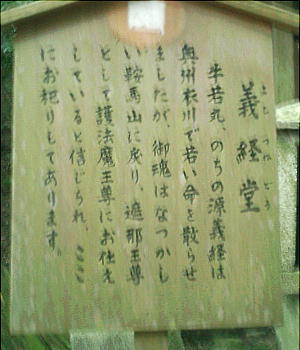 義経堂
よしつねどう
牛若丸、のちの源義経は
奥州衣川で若い命を散らせ
ましたが、御魂はなつかし
い鞍馬山に戻り、遮那王尊
として護法魔王尊にお仕え
していると信じられ、ここ
にお祀りしてあります。